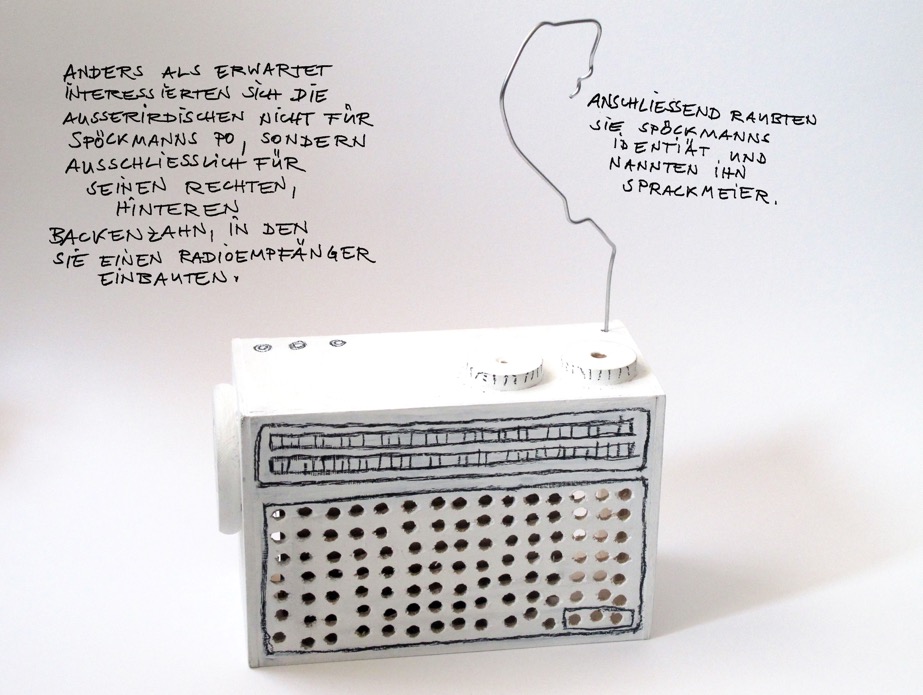 ANDERS ALS ERWARTET
INTERESSIERTEN SICH DIE
AUSSERIRDISCHEN NICHT FÜR
SPÖCKMANNS PO, SONDERN
AUSSCHLIESSLICH FÜR
SEINEN RECHTEN,
HINTEREN
BACKENZAHN, IN DEN
SIE EINEN RADIOEMPFÄNGER
EINBAUTEN.
ANSCHLIESSEND RAUBTEN
SIE SPÖCKMANNS
IDENTIÄT UND
NANNTEN IHN
SPRACKMEIER.